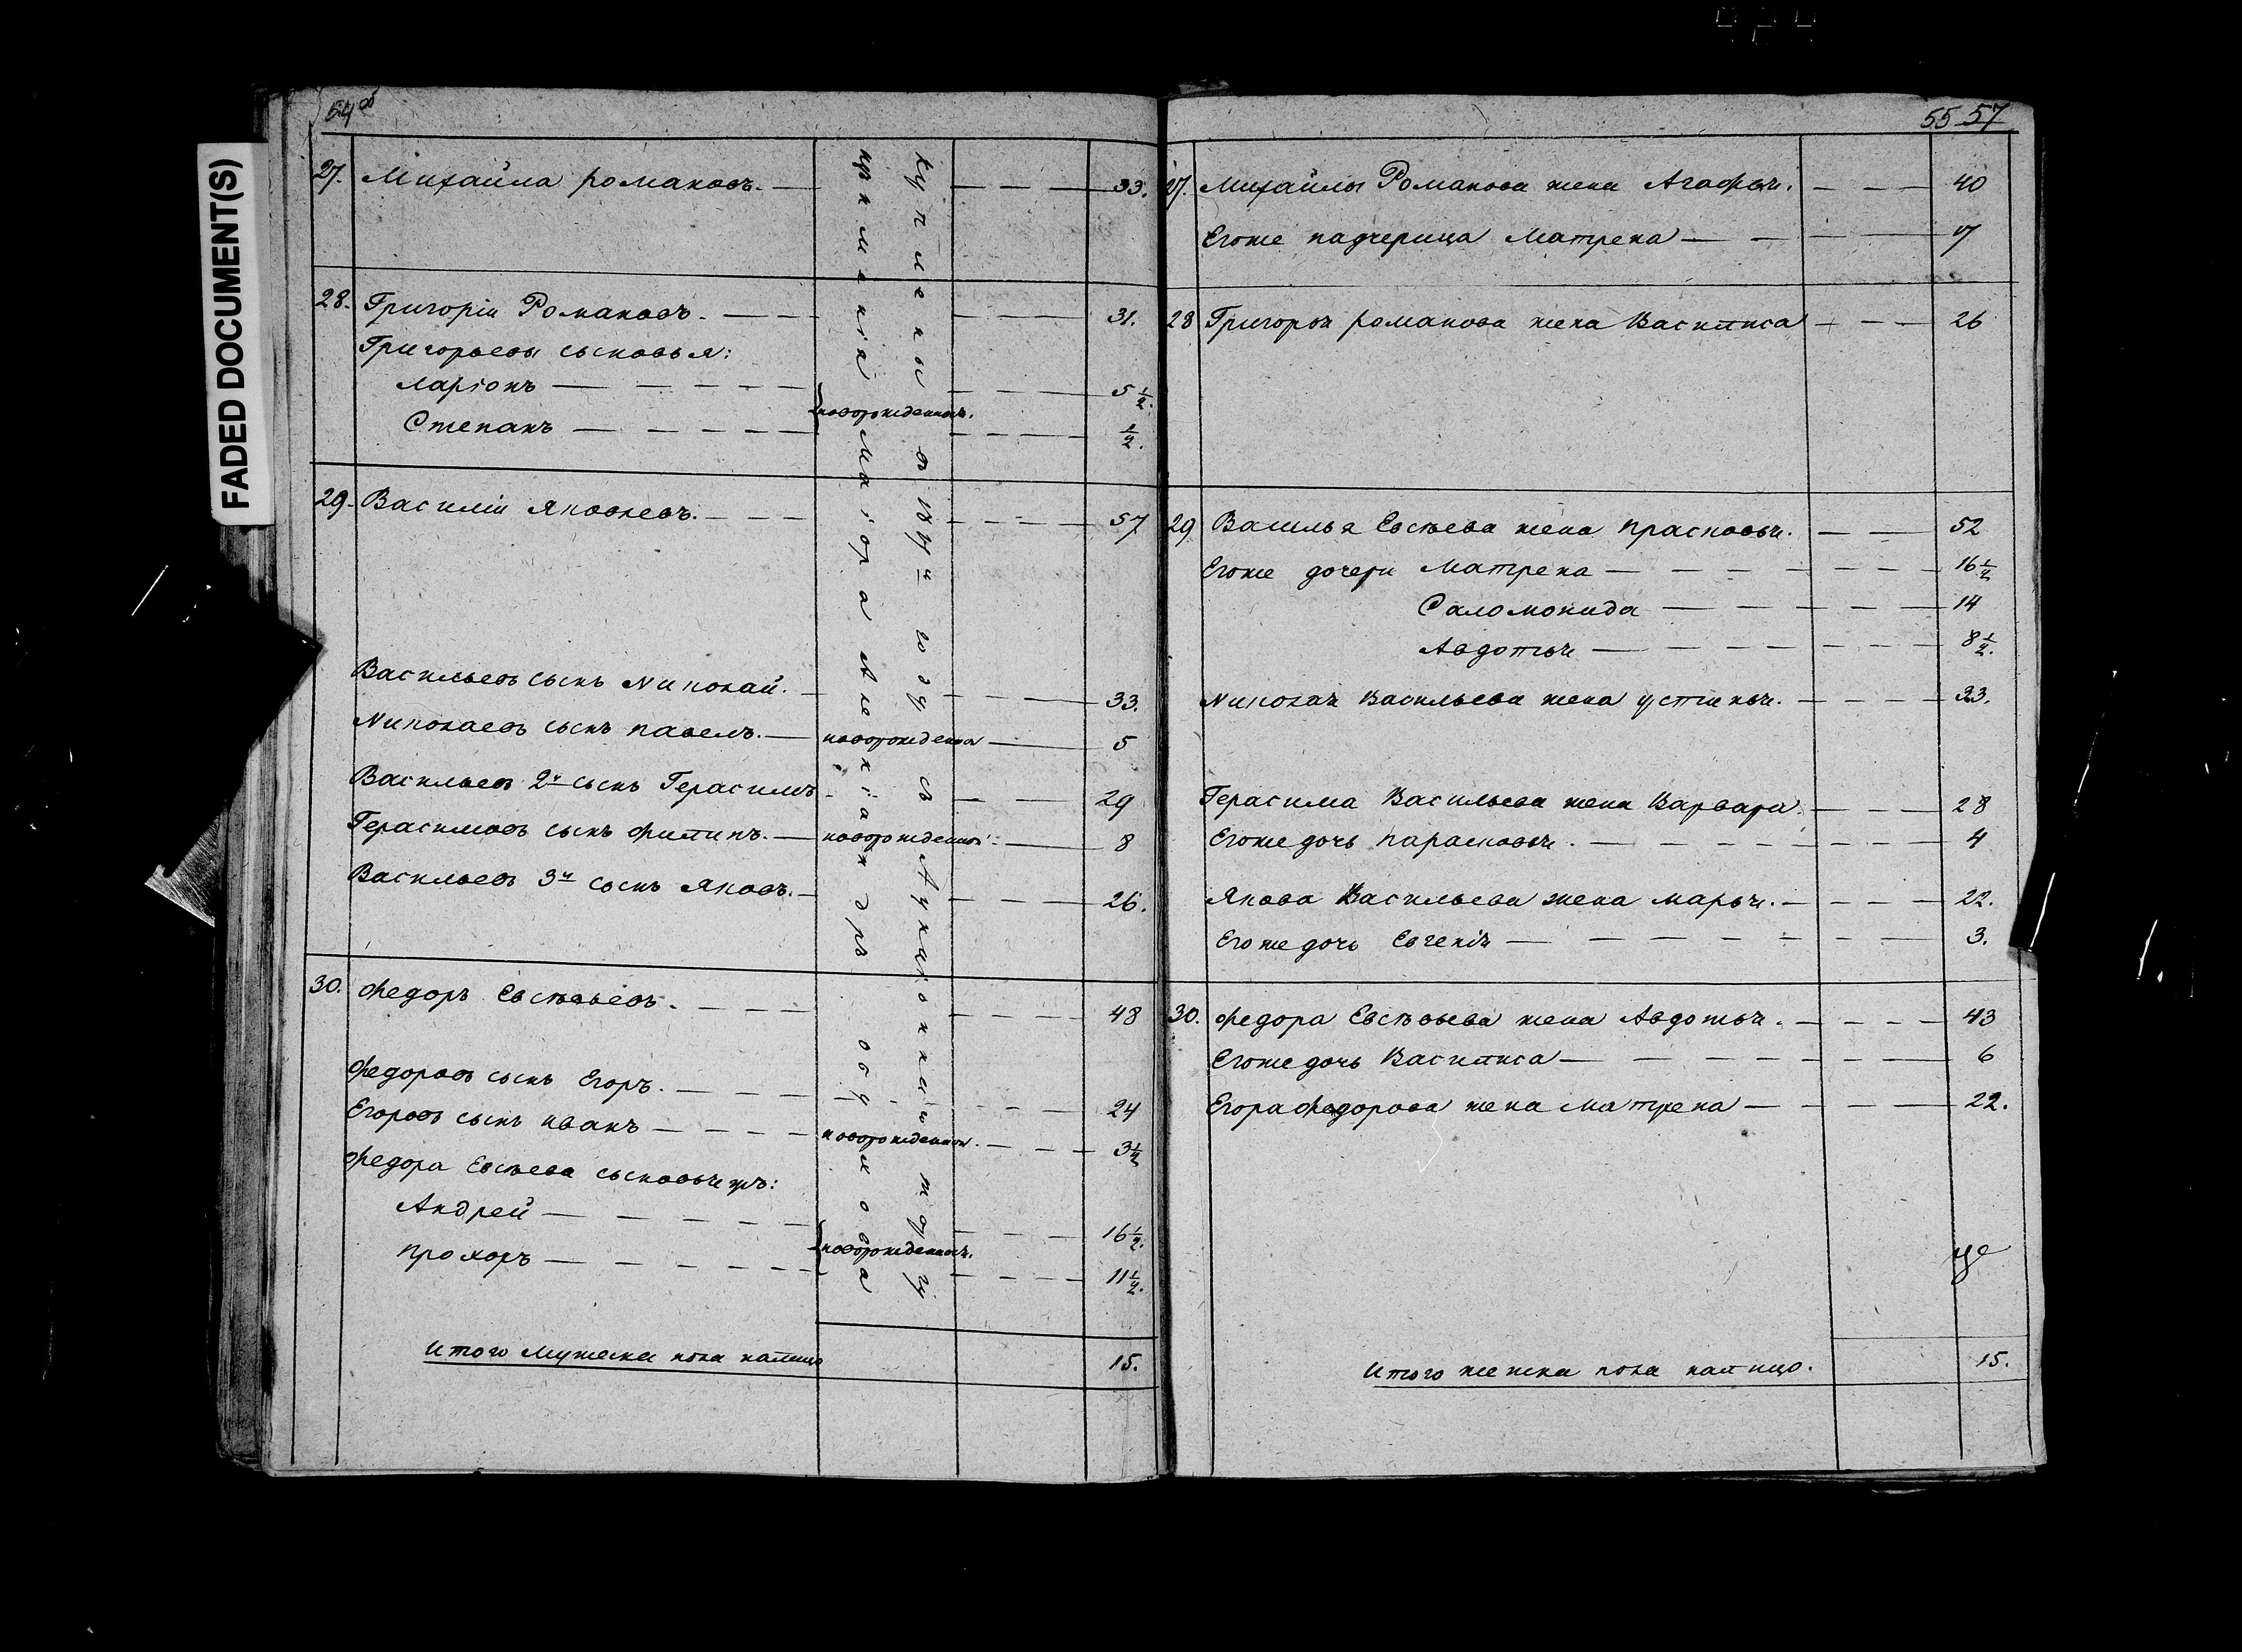 FADED DOCUMENT(S)
54об
27. Михайла романовъ. — 33.
28. Григоріи Романовъ. — 31.
Григорьевы сыновья:
Ларіонъ — 5 1/2.
новорожденныя.
Степанъ — 1/2.
29. Василіи Яковлевъ. — 57
Васильевъ сынъ Николай. — 33.
Николаевъ сынъ павелъ. — новорожденной — 5
Васильевъ 2й сынъ Герасимъ — 29
Герасимовъ сынъ филипъ. — новорожденной — 8
Васильевъ 3й сынъ Яковъ. — 26.
30. Федоръ Евсѣвьевъ. — 48
Федоровъ сынъ Егоръ. — 24
Егоровъ сынъ иванъ — новорожденной. — 3 1/2
Федора Евсѣева сыновья жъ:
Андрей — 16 1/2.
новорожденныя.
прохоръ — 11 1/2.
Итого мужеска пола налицо 15.
Куплены въ году съ Аукціоннаго
маіора
55 57
27. Михайлы Романова жена Агафья. — 40
Егоже падчерица Матрена — 7
28 Григорья романова жена Василиса — 26
29 Василья Евсѣева жена прасковья. — 52
Егоже дочери Матрена — 16 1/2
Саломонида — 14
Авдотья — 8 1/2.
Николая Васильева жена устинья. — 33.
Герасима Васильева жена Варвара. — 28
Егоже дочь парасковья. — 4
Якова Васильева жена марья. — 22.
Егоже дочь Евгенія — 3.
30. Федора Евсѣвьева жена Авдотья. — 43
Егоже дочь Василиса — 6
Егора федорова жена матрена — 22.
Итого женска пола налицо. 15.